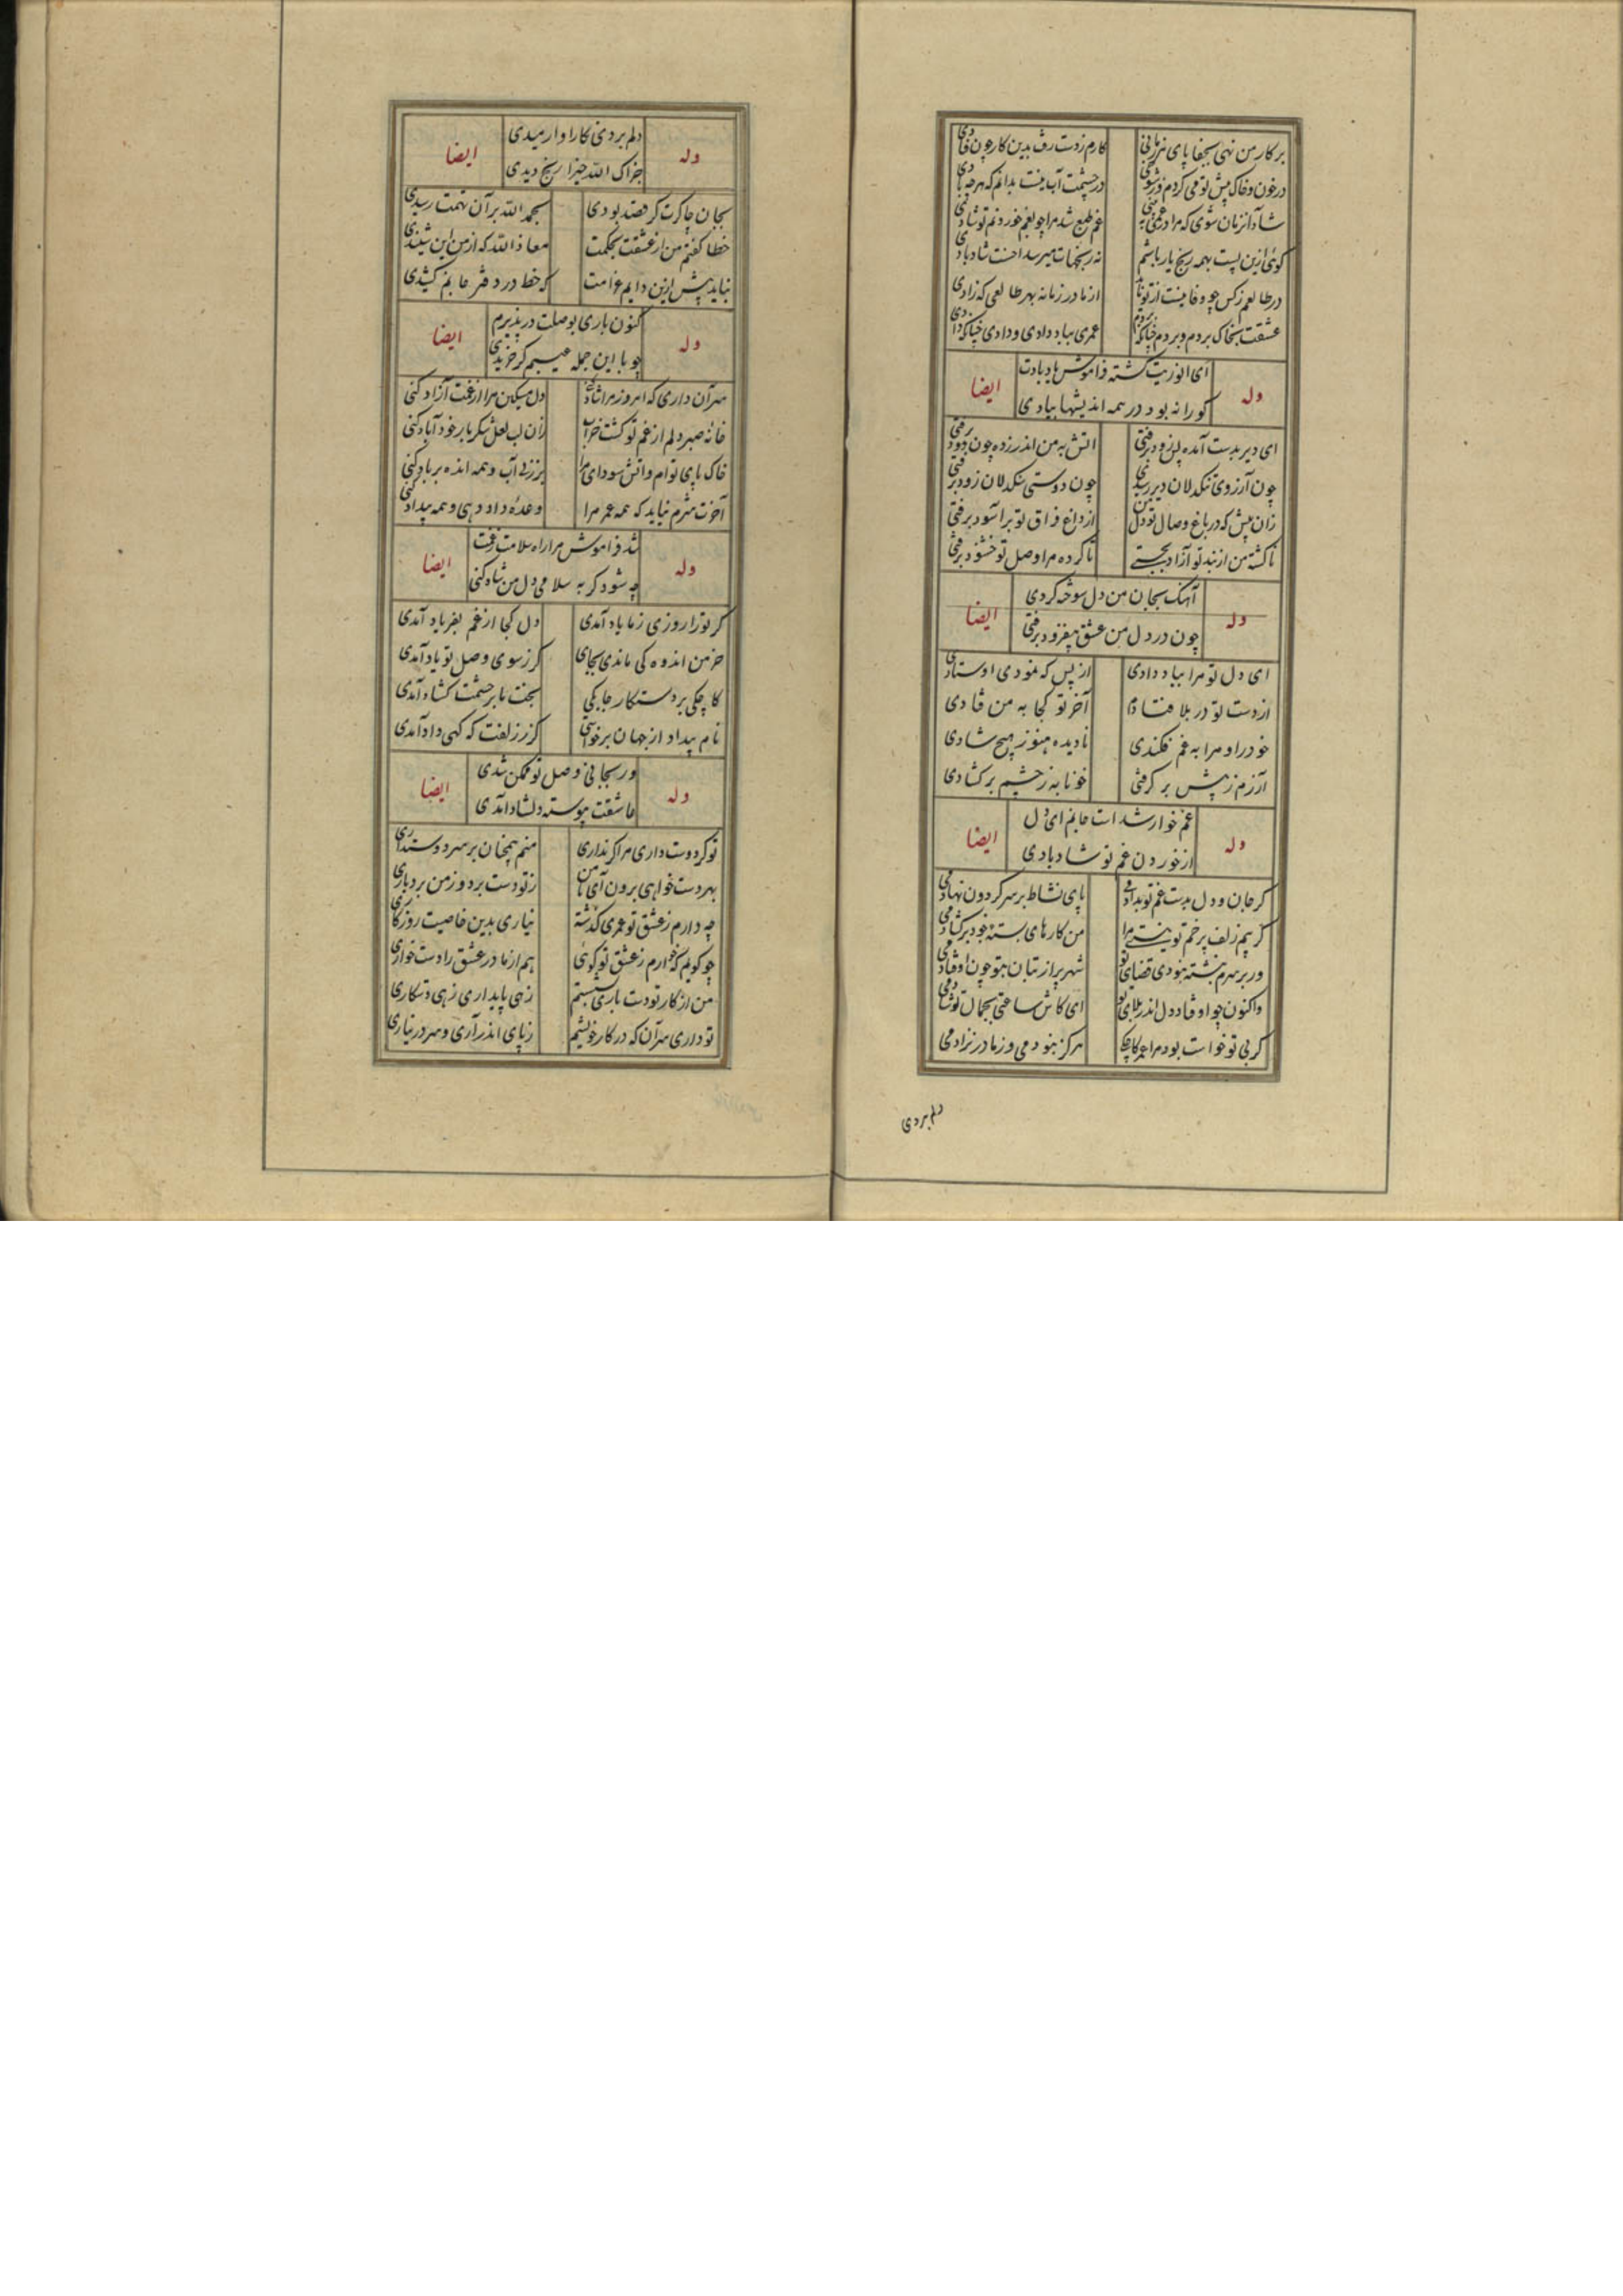 بر کار من نهی بجفا پای هر زمانی کارم ز دست رفت بدین کار چون فتادی
در خون و خاک پیش تو می گردم و نگویی در چشمت آب نیست بدانم که هرچه بادی
شاد آنزمان شوی که مرا در غمی ببینی غم طبع شد مرا چو بغم خوردنم تو شادی
گوئی ازین پست بهمه رنج یار باشم نه رنجهات میرسد احسنت شاد بادی
در طالعم ز کس چو وفا نیست از تو نادر از مادر زمانه بهر طالعی که زادی
عشقت بخاک بردم و بردم چنانکه بردم عمری بباد دادی و دادی چنانکه دادی
وله
ای انوریت گشته فراموش یاد بادت
گورا نه بود در همه اندیشها بیادی
ایضا
ای دیر بدست آمده بس زود برفتی آتش به من اندر زده چون دود برفتی
چون آرزوی تنگدلان دیر رسیدی چون دوستی سنگدلان زود برفتی
زان پیش که در باغ وصال تو دل من از داغ فراق تو بر آسود برفتی
ناگشته من از بند تو آزاد بجستی ناکرده مرا وصل تو خشنود برفتی
وله
آهنگ بجان من دل سوخته کردی
چون در دل من عشق بیفزود برفتی
ایضا
ای دل تو مرا بباد دادی از بس که نمودی اوستادی
از دست تو در بلا فتادم آخر تو کجا به من فتادی
خود را و مرا به غم فکندی نادیده هنوز هیچ شادی
آزرم ز پیش بر گرفتی خونابه ز چشم بر گشادی
وله
غم خوار شدست جانم ای دل
از خوردن غم تو شاد بادی
ایضا
گر جان و دل بدست غم تو ندادمی پای نشاط بر سر گردون نهادمی
گر بیم زلف پر خم تو نیستی مرا من کارهای بسته خود برگشادمی
ور بر سرم نبشته نبودی قضای تو شهر پر از بتان بتو چون اوفتادمی
واکنون چو اوفتاد دل اندر بلای تو ای کاش ساعتی بجمال تو شادمی
گر بی تو خواست بود مرا عمر کاجکی هرگز نبودمی و ز مادر نزادمی
دلم بردی
وله
دلم بردی نگارا وارمیدی
جزاک الله خیرا رنج دیدی
ایضا
بجان چاکرت گر قصد بودی بحمد الله بر آن نهمت رسیدی
خطا گفتم من از عشقت بحکمت معاذ الله که از من این شنیدی
نباید بیش ازین دایم غرامت که خط در دفتر جانم کشیدی
وله
کنون باری بوصلت در پذیرم
چو با این جمله عیبم گر خریدی
ایضا
سر آن داری کامروز مرا شاد کنی دل مسکین مرا از غمت آزاد کنی
خانه صبر دلم از غم تو گشت خراب زان لب لعل شکر بار خود آباد کنی
خاک پای توام و آتش سودای مرا برزنی آب و همه انده بر باد کنی
آخرت شرم نیاید که همه عمر مرا وعده داد دهی و همه بیداد کنی
وله
شد فراموش مرا راه سلامت ز غمت
چه شود گر به سلامی دل من شاد کنی
ایضا
گر ترا روزی ز ما یاد آمدی دل کجا از غم بفریاد آمدی
خرمن اندوه کی ماندی بجای گر ز سوی وصل تو باد آمدی
کاجکی بر دست کار چابکی بخت ما بر حشمت گشاد آمدی
نام بیداد از جهان برخواستی گر ز زلفت که گهی داد آمدی
وله
ور بجانی وصل تو ممکن شدی
عاشقت پیوسته دلشاد آمدی
ایضا
تو گر دوست داری مرا گر نداری منم همچنان بر سر دوستداری
بهر دست خواهی برون آی با من ز تو دستبرد و ز من بردباری
چه دارم ز عشق تو عمری گذشته نیاری بدین خاصیت روزگاری
چو گویم که خوارم ز عشق تو گوئی هم از مادر عشق زادست خواری
من از کار تو دست باری بشستم زهی پایداری زهی دستکاری
تو داری سر آن که در کار خویشم ز پای اندر آری و سر در نیاری